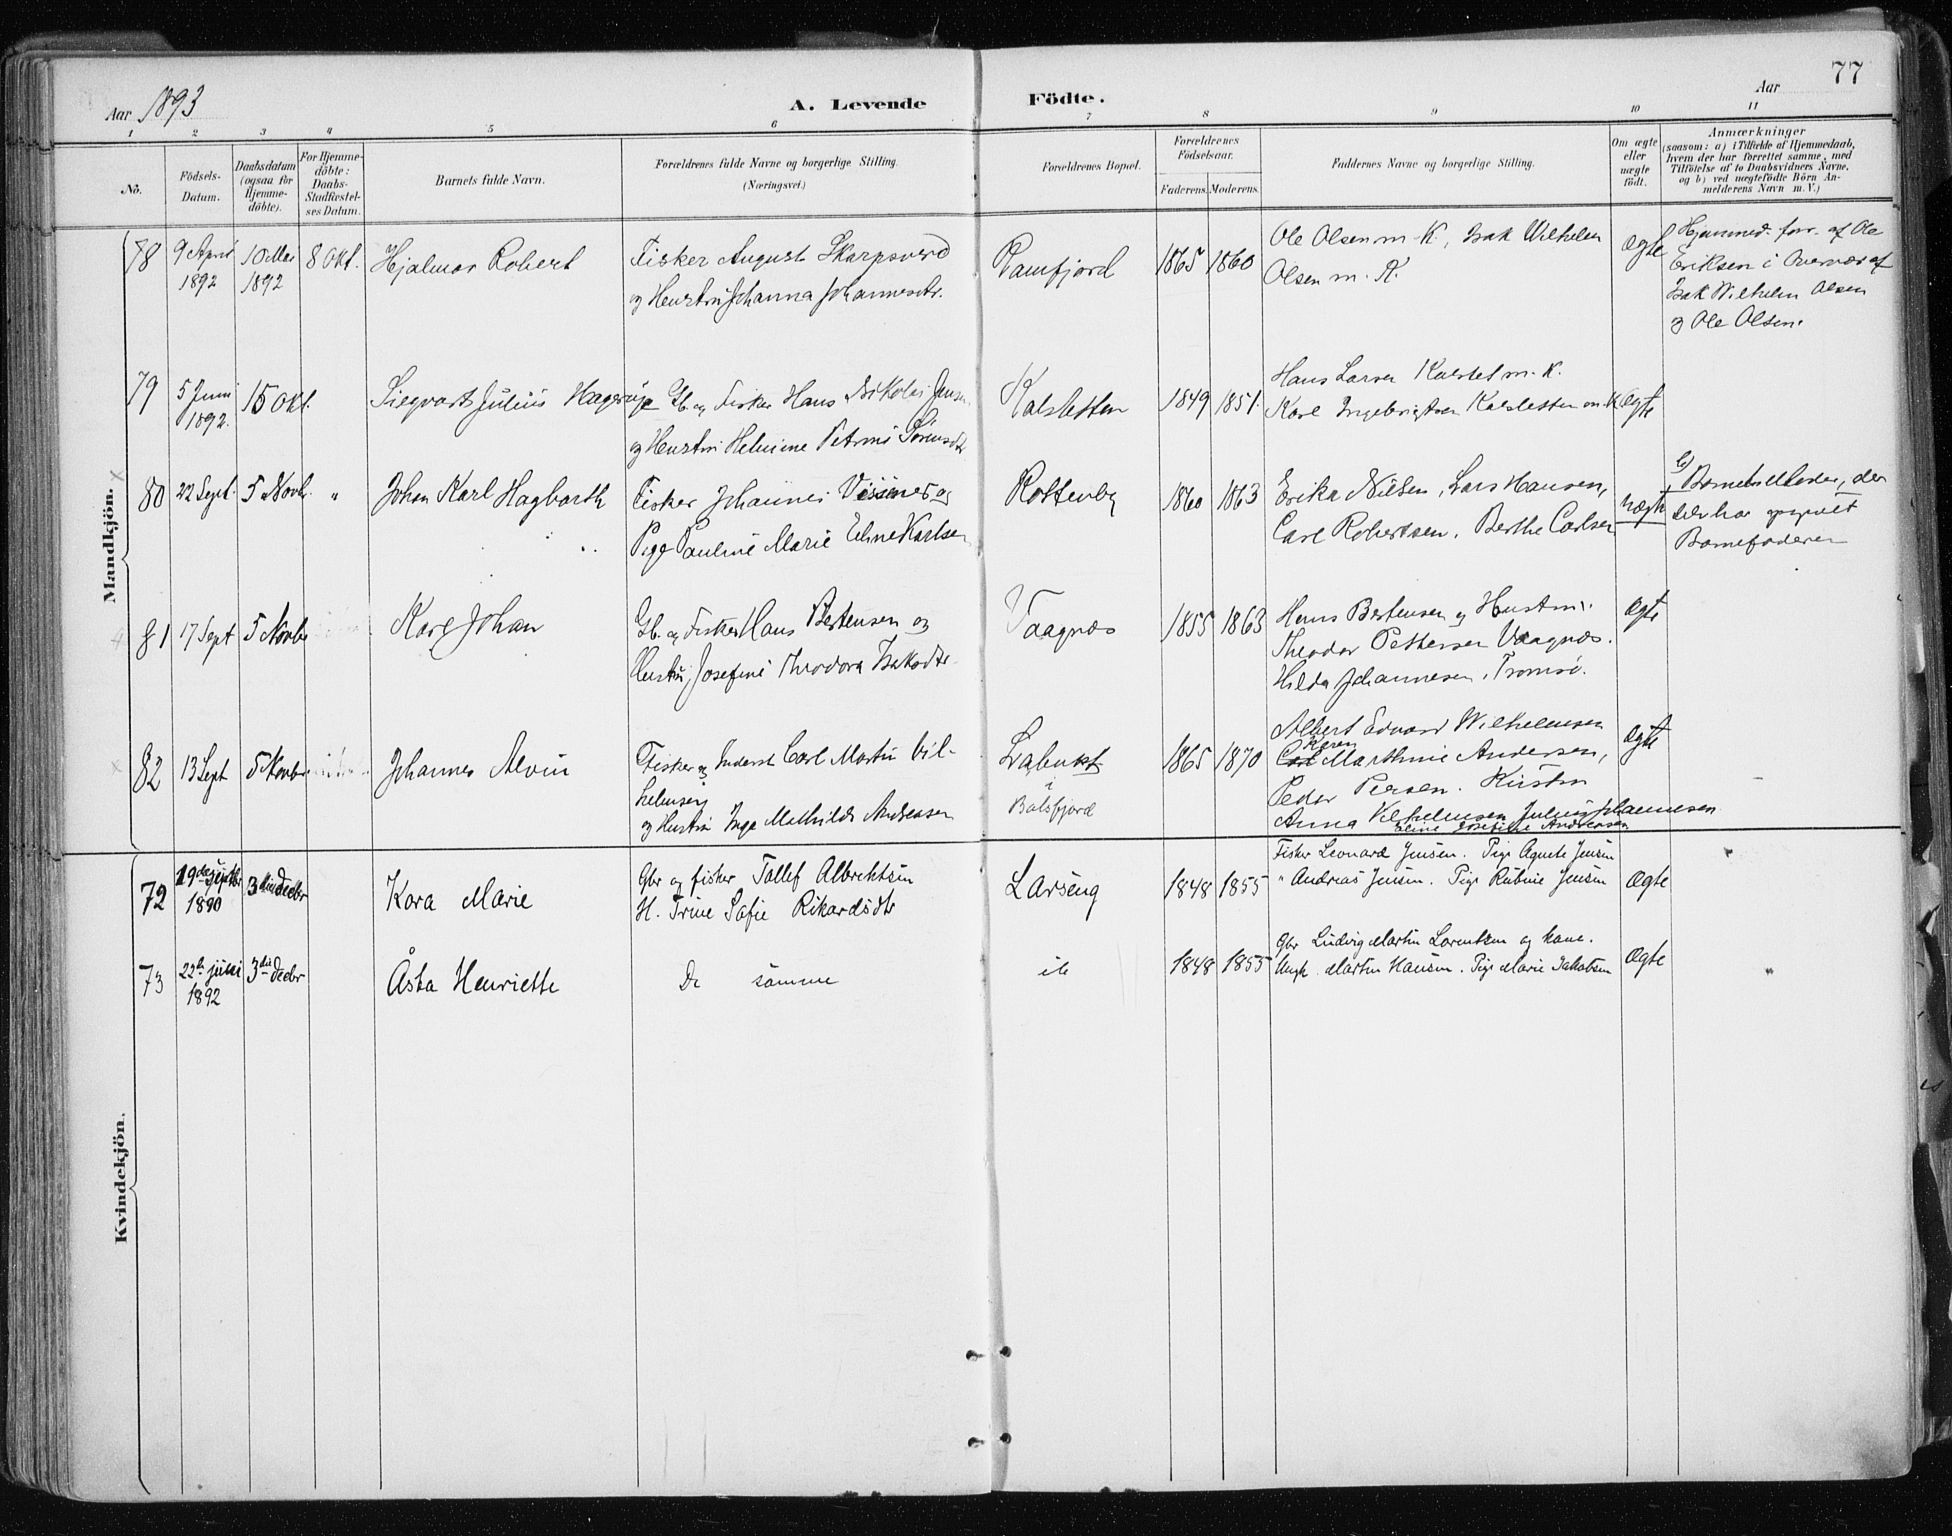 77
Aar 1893
A. Levende Födte.
Aar
1 2 3 4 5 6 7 8 9 10 11
No.
Födsels-Datum.
Daabsdatum (ogsaa for Hjemme-döbte).
For Hjemme-döbte: Daabs-Stadfæstel-ses Datum.
Barnets fulde Navn.
Forældrenes fulde Navne og borgerlige Stilling.
(Næringsvei.)
Forældrenes Bopæl.
Forældrenes Födselsaar.
Faderens. Moderens.
Faddernes Navne og borgerlige Stilling.
Om ægte eller uægte födt.
Anmærkninger
(saasom: a) i Tilfælde af Hjemmedaab, hvem der har forrettet samme, med Tilföielse af to Daabsvidners Navne, og b) ved uægtefödte Börn An-melderens Navn m. V.)
Mandkjön.
78 9 April 1892 10 Mai 1892 8 Okt. Hjalmar Robert
Fisker August Skarpsverd
og Hustru Johanna Johannesdtr.
Ramfjord 1865 1860
Ole Olsen m. K., Isak Wilhelm
Olsen m. K.
Ægte
Hjemmed. forr. af Ole
Eriksen i Overvær af
Isak Wilhelm Olsen
og Ole Olsen.
79 5 Juni 1892. 15 Okt. Siegvart Julius Hagerup
Gb. og Fisker Hans Nikolai Jensen
og Hustru Helmine Petrine Sørensdtr
Kalsletten 1849 1851.
Hans Larsen Kalslet m. K.
Karl Ingebrigtsen Kalsletten m. K
Ægte
80 22 Sept. 5 Novb. " Johan Karl Hagbarth
Fisker Johannes og
Pige Pauline Marie Karlsen
Rottenby 1860 1863
Erika Nilsen, Lars Hansen,
Carl Robertsen, Berthe Carlsen
Uægte
b) Barnets Moder, der
selv har opgivet
Barnefaderen
81 17 Sept 5 Novbr Karl Johan
Gb. og Fisker Hans Bertensen og
Hustru, Josefine Theodora Isaksdtr.
Vaagnæs 1855 1863
Hans Bertensen og Hustru.
Theodor Pettersen Vaagnæs.
Hilda Johannesen, Tromsø.
Ægte
82 13 Sept 5 Novbr Johannes Alvin
Fisker og Inderst Carl Martin Vil-
helmsen
og Hustru Inga Mathilde Andreasen
Labukt
i
Balsfjord
1865 1870
Albert Edvard Wilhelmsen
Karen Marthine Andersen,
Peder Persen. Kirstin
Anna Vilhelmsen Julius Johannesen
Eline Josefine Andersen
Ægte
Kvindekjön.
72 19de Septbr 1890 3die Decbr Kora Marie
Gbr og fisker Tollef Albrektsen
H. Trine Sofie Rikardsdtr
Larseng 1848 1855
Fisker Leonard Jensen. Pige Agnete Jensen
" Andreas Jensen. Pige Rubine Jensen
Ægte
73 22de juni 1892 3die Decbr Åsta Henriette
De samme
ib 1848 1855
Gbr Ludvig Martin Lorentsen og kone.
Ungk. Martin Hansen. Pige Marie Jakobsen
Ægte